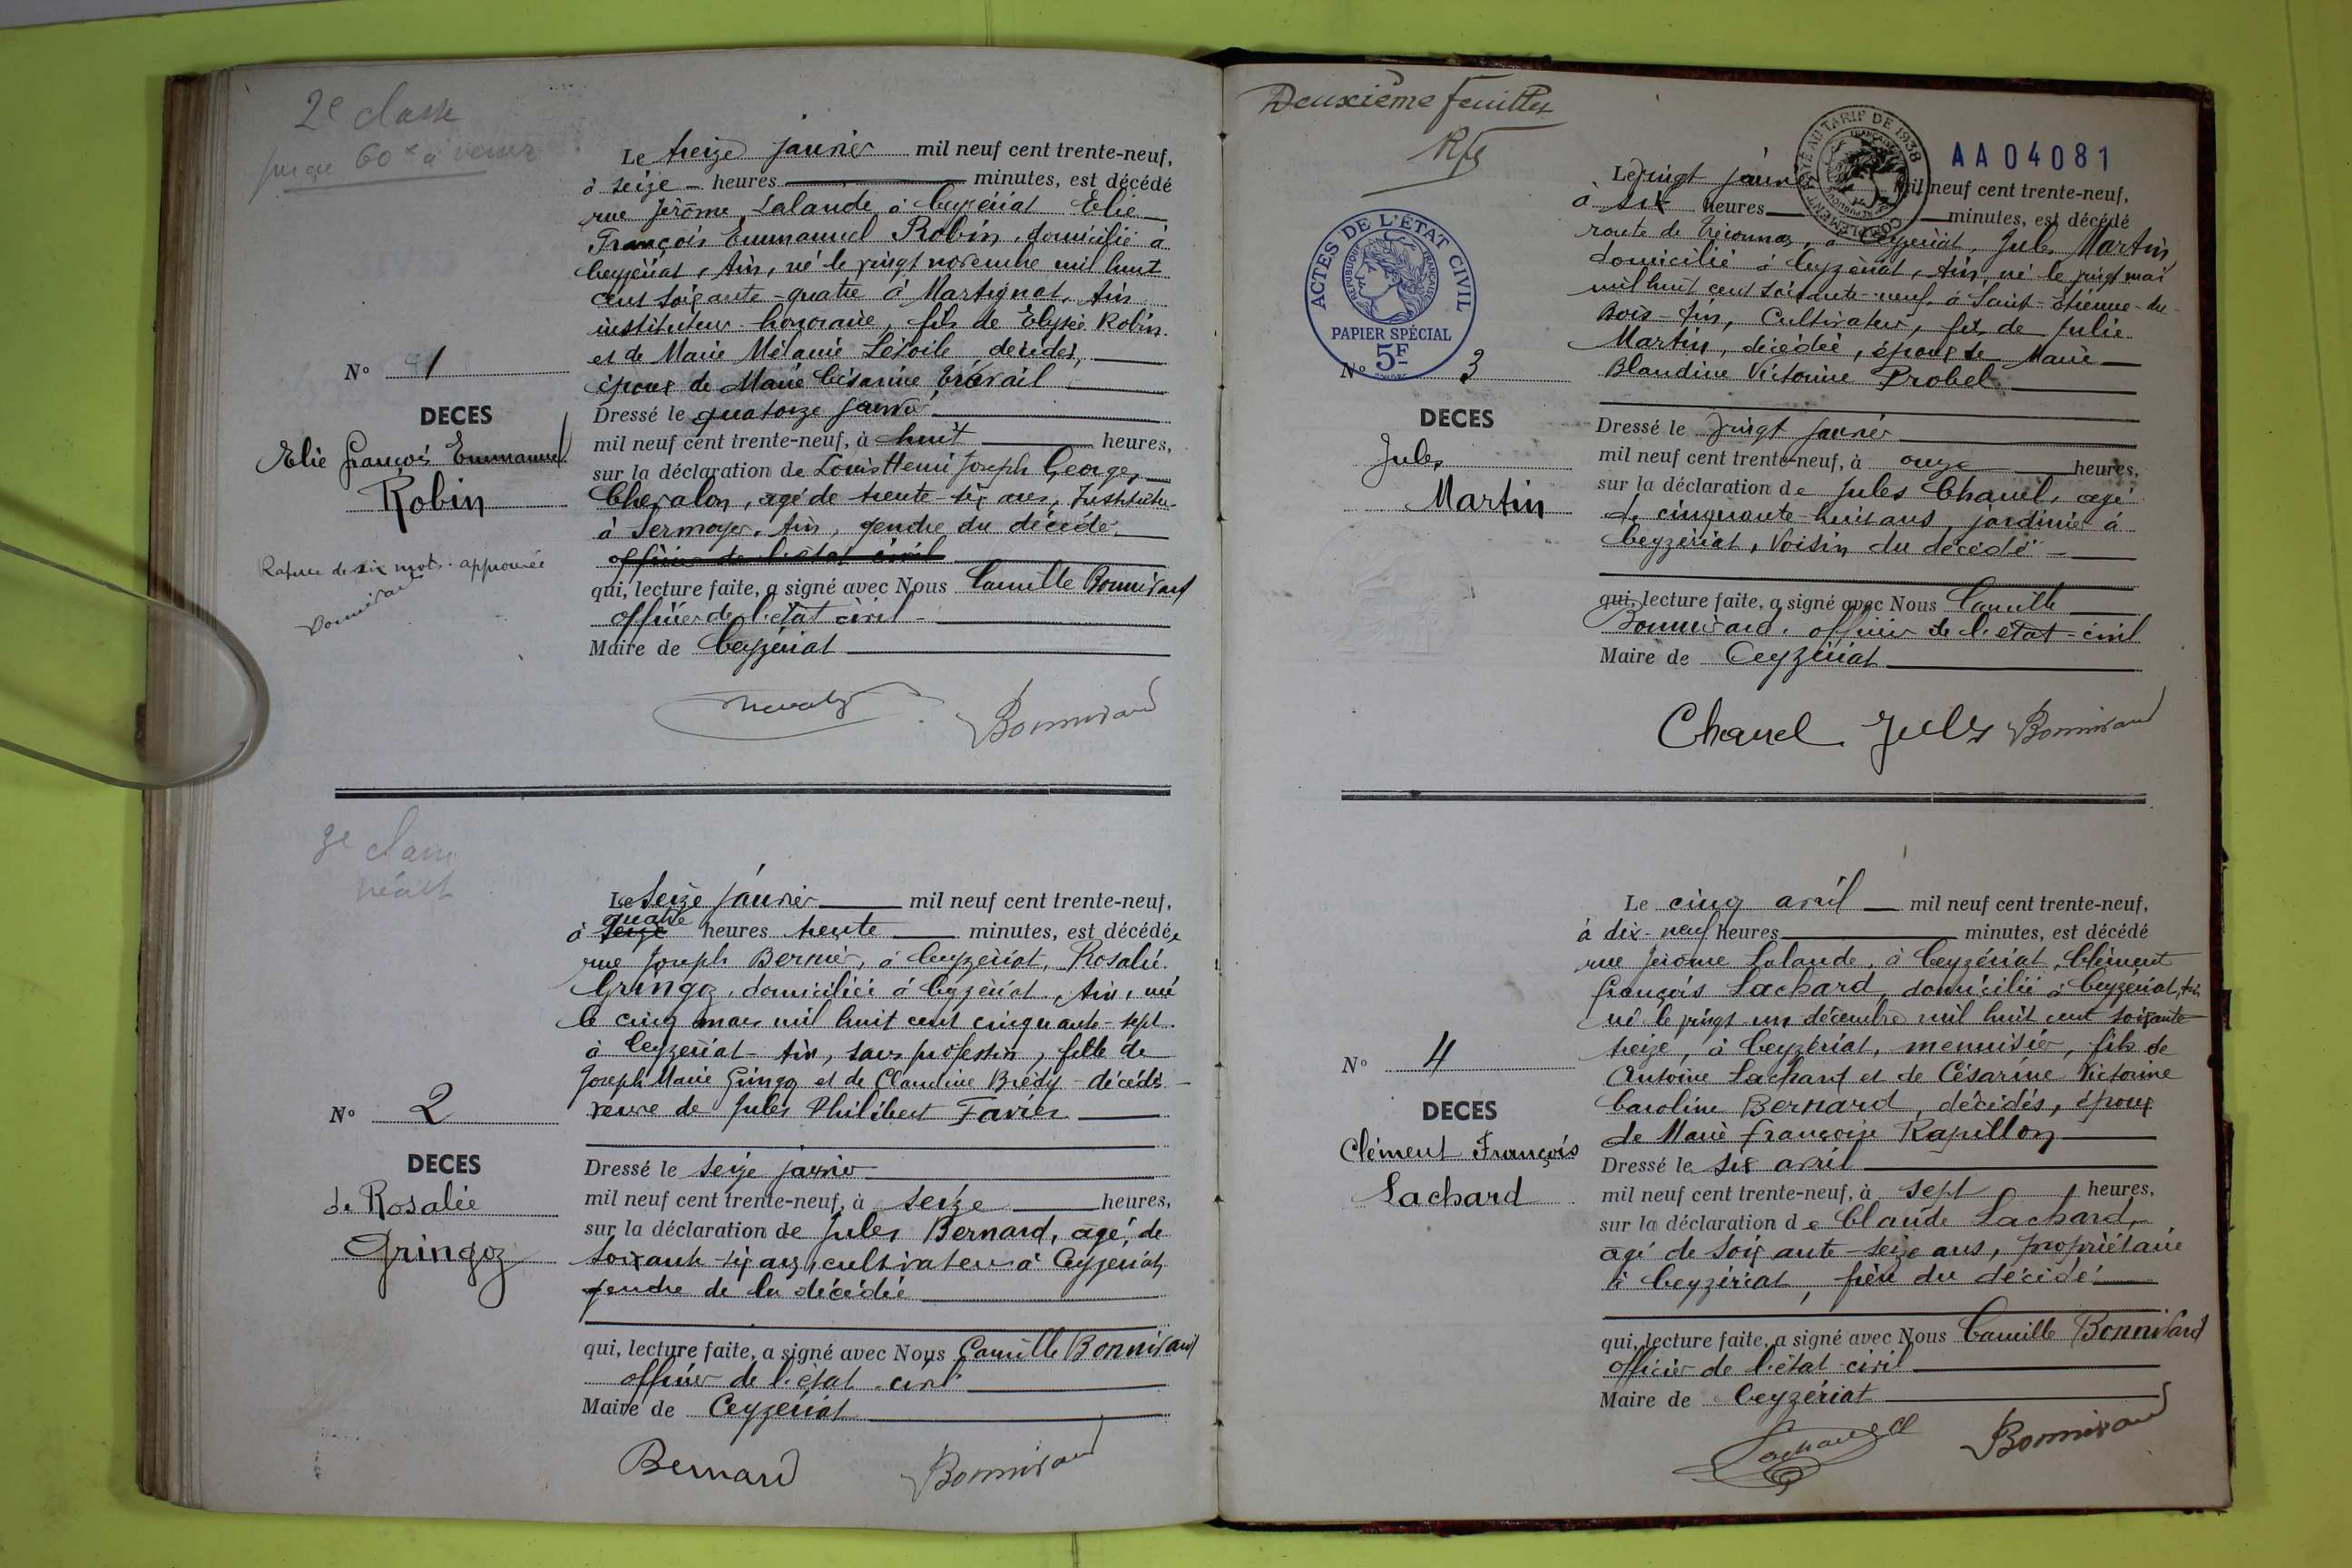 2e classe
60 à verser
Le treize janvier mil neuf cent trente-neuf,
à seize heures minutes, est décédé
rue Jérôme Lalande à Ceyzériat Elie
François Emmanuel Robin, domicilié à
Ceyzériat, Ain, né le vingt novembre mil huit
cent soixante-quatre à Martignat, Ain
instituteur honoraire, fils de Elysée Robin
et de Marie Mélanie Létoile, décédés,
époux de Marie Césarine Travail
Dressé le quatorze janvier
mil neuf cent trente-neuf, à huit heures,
sur la déclaration de Louis Henri Joseph George,
Chevalon, âgé de trente-six ans, Instituteur
à Sermoyer, Ain, gendre du décédé,
officier de l'état civil
qui, lecture faite, a signé avec Nous Camille Bonnivard
officier de l'état civil
Maire de Ceyzériat
Bonnivard
N° 1
DECES
Elie François Emmanuel
Robin
Rature de six mots approuvée
Bonnivard
3e classe
néant
Le seize janvier mil neuf cent trente-neuf,
quatre
à seize heures trente minutes, est décédée
rue Joseph Bernier, à Ceyzériat, Rosalie
Gringoz, domiciliée à Ceyzériat, Ain, né
le cinq mars mil huit cent cinquante-sept
à Ceyzériat-Ain, sans profession, fille de
Joseph Marie Gringoz et de Claudine Brédy - décédés
veuve de Jules Philibert Favier
Dressé le seize janvier
mil neuf cent trente-neuf, à seize heures,
sur la déclaration de Jules Bernard, âgé de
soixante-six ans, cultivateur à Ceyzériat,
gendre de la décédée
qui, lecture faite, a signé avec Nous Camille Bonnivard
officier de l'état civil
Maire de Ceyzériat
Bernard Bonnivard
N° 2
DECES
de Rosalie
Gringoz
Deuxième feuillet
COMPLÉMENTÉ AU TARIF DE 1938
RÉPUBLIQUE FRANÇAISE
AA04081
ACTES DE L'ÉTAT CIVIL
RÉPUBLIQUE FRANÇAISE
PAPIER SPÉCIAL
5F
Le vingt janvier mil neuf cent trente-neuf,
à six heures minutes, est décédé
route de Treconnas, à Ceyzériat, Jules Martin,
domicilié à Ceyzériat, Ain, né le vingt mai
mil huit cent soixante-neuf à Saint-Etienne-du-
Bois-Ain, Cultivateur, fils de Julie
Martin, décédée, époux de Marie
Blandine Victorine Probel
Dressé le vingt janvier
mil neuf cent trente-neuf, à onze heures,
sur la déclaration de Jules Chanel, âgé
de cinquante-huit ans, jardinier à
Ceyzériat, Voisin du décédé
qui, lecture faite, a signé avec Nous Camille
Bonnivard, officier de l'état-civil
Maire de Ceyzériat
Chanel Jules Bonnivard
N° 3
DECES
Jules
Martin
Le cinq avril mil neuf cent trente-neuf,
à dix-neuf heures minutes, est décédé
rue Jérôme Lalande, à Ceyzériat, Clément
François Lachard, domicilié à Ceyzériat, Ain
né le vingt-un décembre mil huit cent soixante
treize, à Ceyzériat, menuisier, fils de
Antoine Lachard et de Césarine Victorine
Caroline Bernard, décédés, époux
de Marie Françoise Rapillon
Dressé le six avril
mil neuf cent trente-neuf, à sept heures,
sur la déclaration de Claude Lachard,
âgé de soixante-seize ans, propriétaire
à Ceyzériat, frère du décédé
qui, lecture faite, a signé avec Nous Camille Bonnivard
officier de l'état civil
Maire de Ceyzériat
Bonnivard
N° 4
DECES
Clément François
Lachard